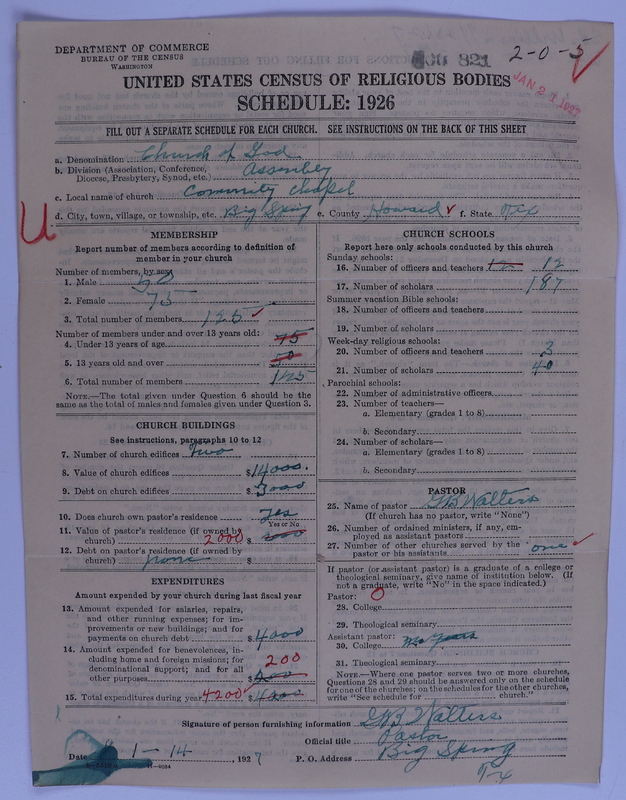 DEPARTMENT OF COMMERCE
BUREAU OF THE CENSUS
WASHINGTON
821
2-0-5
JAN 21 1927
UNITED STATES CENSUS OF RELIGIOUS BODIES
SCHEDULE: 1926
FILL OUT A SEPARATE SCHEDULE FOR EACH CHURCH. SEE INSTRUCTIONS ON THE BACK OF THIS SHEET
a. Denomination Church of God
b. Division (Association, Conference, Diocese, Presbytery, Synod, etc.) Assembly
c. Local name of church Community chapel
d. City, town, village, or township, etc. Big Spring e. County Howard f. State Tex
MEMBERSHIP
Report number of members according to definition of
member in your church
Number of members, by sex:
1. Male 50
2. Female 75
3. Total number of members 125
Number of members under and over 13 years old:
4. Under 13 years of age 75
5. 13 years old and over 50
6. Total number of members 125
NOTE.—The total given under Question 6 should be
same as the total of males and females given under Question 3.
CHURCH BUILDINGS
See instructions, paragraphs 10 to 12
7. Number of church edifices Two
8. Value of church edifices $14000.
9. Debt on church edifices $3000
10. Does church own pastor's residence Yes
Yes or No
11. Value of pastor's residence (if owned by
church) 2000 $
12. Debt on pastor's residence (if owned by
church) none $
EXPENDITURES
Amount expended by your church during last fiscal year
13. Amount expended for salaries, repairs,
and other running expenses; for im-
provements or new buildings; and for
payments on church debt $4000
14. Amount expended for benevolences, in-
cluding home and foreign missions; for
denominational support; and for all
other purposes 200 $
15. Total expenditures during year 4200 $
CHURCH SCHOOLS
Report here only schools conducted by this church
Sunday schools:
16. Number of officers and teachers 12
17. Number of scholars 187
Summer vacation Bible schools:
18. Number of officers and teachers
19. Number of scholars
Week-day religious schools:
20. Number of officers and teachers 3
21. Number of scholars 40
Parochial schools:
22. Number of administrative officers
23. Number of teachers—
a. Elementary (grades 1 to 8)
b. Secondary
24. Number of scholars—
a. Elementary (grades 1 to 8)
b. Secondary
PASTOR
25. Name of pastor GB Walters
(If church has no pastor, write "None")
26. Number of ordained ministers, if any, em-
ployed as assistant pastors
27. Number of other churches served by the
pastor or his assistants one
If pastor (or assistant pastor) is a graduate of a college or
theological seminary, give name of institution below. (If
not a graduate, write "No" in the space indicated.)
Pastor: 0
28. College
29. Theological seminary
Assistant pastor:
30. College
31. Theological seminary
NOTE.—Where one pastor serves two or more churches,
Questions 28 and 29 should be answered only on the schedule
for one of the churches; on the schedules for the other churches,
write "See schedule for church."
Signature of person furnishing information GB Walters
Official title Pastor
Date 1-14, 1927 P. O. Address Big Spring
Tex